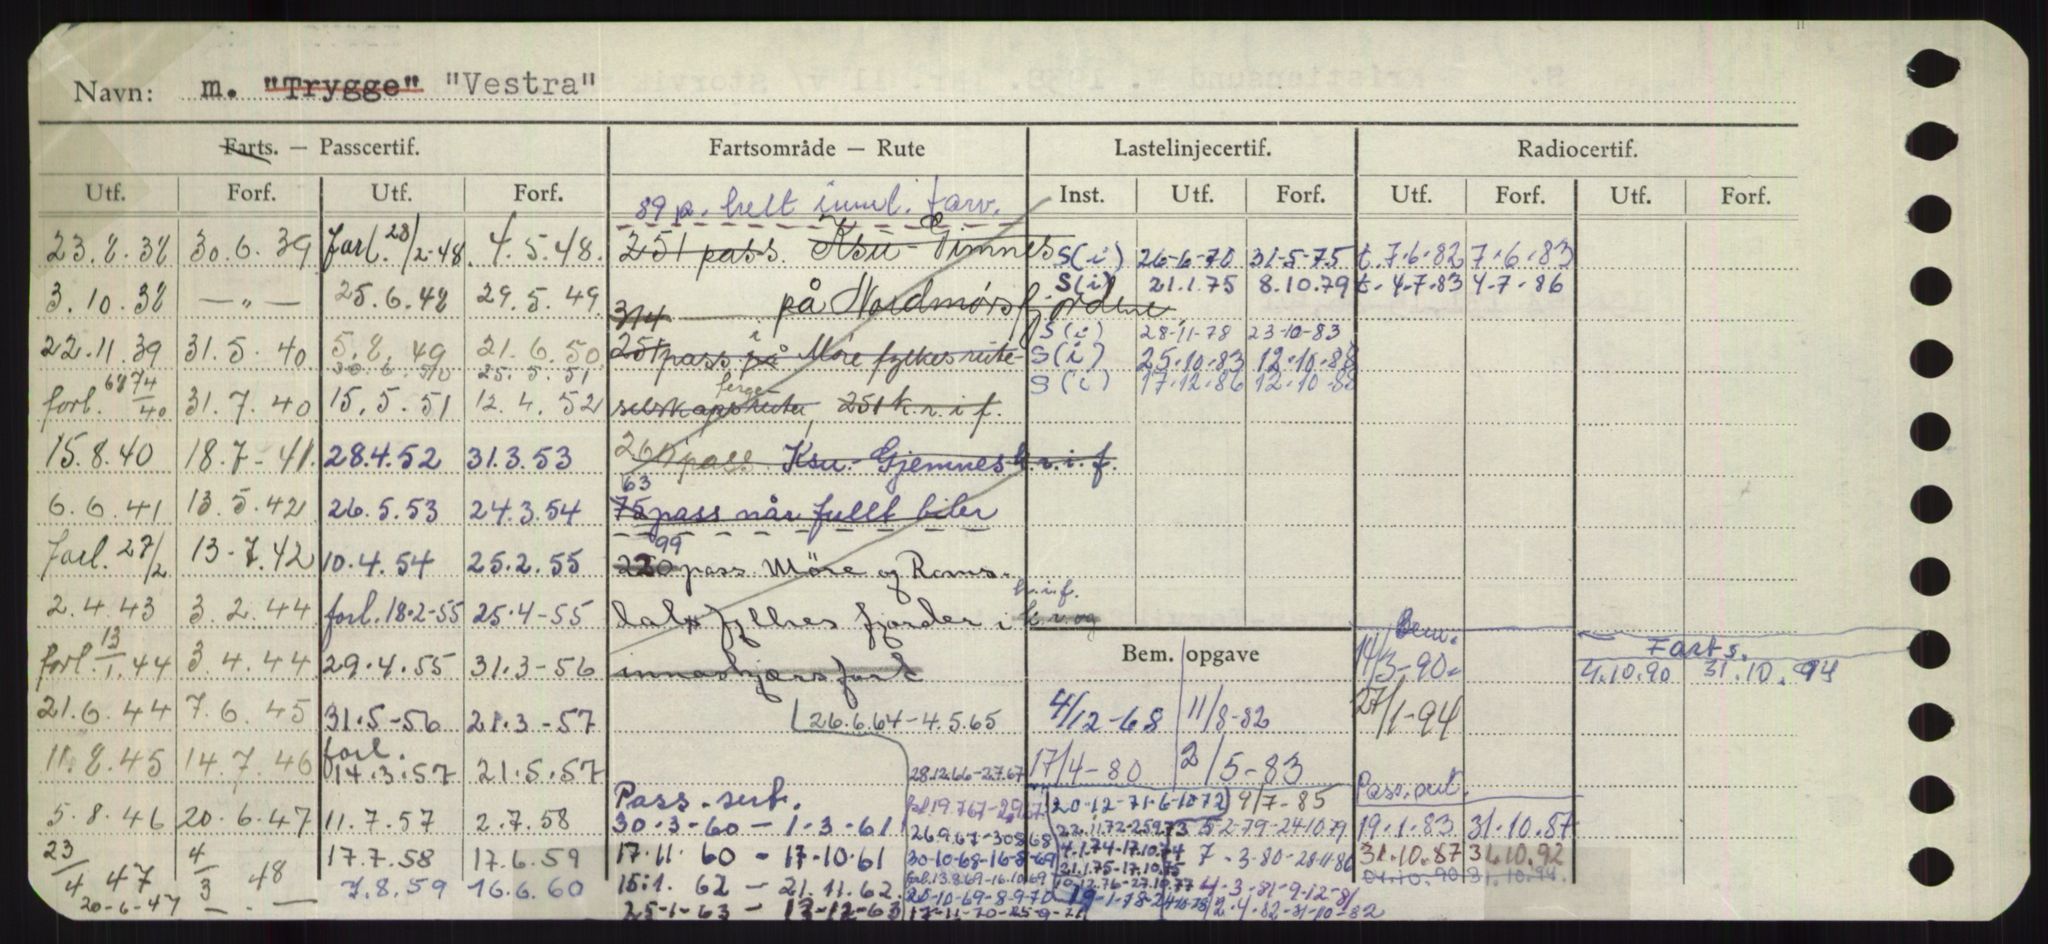 Navn: m. "Trygge" "Vestra"
Farts. — Passcertif. Fartsområde — Rute Lastelinjecertif. Radiocertif.
Utf. Forf. Utf. Forf. Inst. Utf. Forf. Utf. Forf. Utf. Forf.
89 p. helt innl. farv.
23.8.38 30.6.39 Forl. 23/2-48. 4.5.48. 251 pass. Ksu - Gimnes S(i) 26-6-70 31-5-75 t.7.6.82 7.6.83
3.10.38 — " — 25.6.48 29.5.49 på Nordmørsfjordene S(i) 21.1.75 8.10.79 t. 4.7.83 4.7.86
314 S(i) 28-11-78 23-10-83
22.11.39 31.5.40 5.8.49 21.6.50 251 pass. i på Møre fylkesrute- S(i) 25.10.83 12.10.88
30.6.50 25.5.51 S(i) 17.12.86 12.10.88
forl. 31.7.40 15.5.51 12.4.52 selskaps ruter, 251 k.r.i f.
15.8.40 18.7-41. 28.4.52 31.3.53 pass Ksu.- Gjemnes k.r.i.f.
63
6.6.41 13.5.42 26.5.53 24.3.54 75 pass når fullt biler
99
Forl. 27/2 13-7.42 10.4.54 25.2.55 220 pass Möre og Roms-
k.i.f.
2.4.43 3.2.44 forl. 18.2-55 25.4-55 dal fylkes fjorder i k.r. og
Bem. Farts.
forl. 13/1.44 3.4.44 29.4.55 31.3-56 innaskjærs fart Bem. opgave 14/3-90. 4.10.90 31.10.94
21.6.44 7.6.45 31.5-56 21.3-57 26.6.64-4.5.65 4/12-68 11/8-82 27/1-94
11.8.45 14.7.46 forl. 14.3.57 21.5.57 28.12.66-2.7.67 17/4-80 2/5-83
Pass. sert. 20-12-71-6-10 72 9/7-85 Pass. sert.
5.8.46 20.6.47 11.7.57 2.7.58 30.3-60 - 1.3-61 26.9.67-30.8.68 22.11.72-25.9.73 5-2-79-24.10.79 19.1.83 31.10.87
23/4 47 4/3 48 17.7.58 17.6.59 17.11.60 - 17.10.61 30-10-68-16-8-69 4.1.74-17.10.74 7-3-80-28-11-80 31.10.87 31.10.92
21.1.75-17.10.75
20-6-47 — . — 7.8.59 16.6.60 15.1.62 - 21.11.62. forl. 13.8.69-16.10.69 10.12.76-27.10.77 4-3-81-9-12-81
20-10-69-8-9-70 19-1-78-24-10-78
25-1-63 - 12-12-63 17-11-70-25-9-71 2.4.82-31-10-82